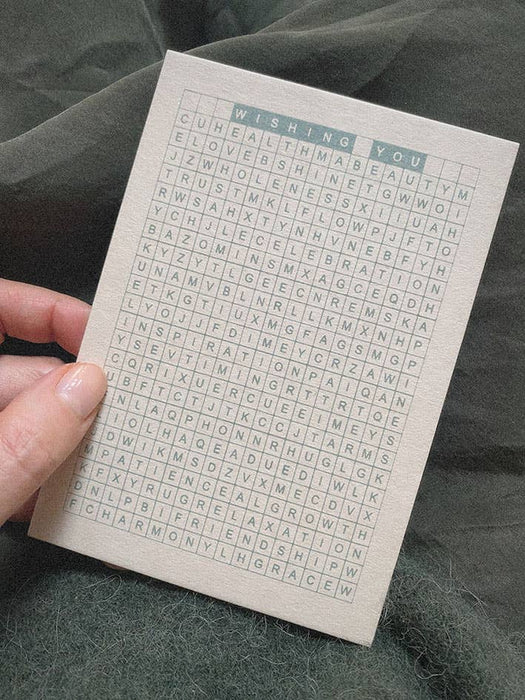 WISHING YOU
CUHEALTHMABEAUTYM
ELOVEBSHINETGWWOI
JZWHOLENESSXIIUAH
TRUSTMKLFLOWPJFTO
RWSAHXTYNHVNEBFYH
YCHJLECELEBRATION
BAZOMINSMXAGCEQDH
KYZYTLGEECNREMSKA
UNAMVBLNRLLKMXNHP
ETKGTIUXMGFAGSMGP
LYOJJFDIMEYCRZAWI
INSPIRATIONPAIQAN
YSEVTIMINGRTTRTOE
CQRIXUERCUEEIMEYS
UBFTCTJTKCCJTARMS
NLAQPHONNRHUGLGK
IOLHAQEADUEDIWLK
DWIKMSDZVXMECDVX
MPATIENCEALGROWTH
KFXYRUGRELAXATION
DNLPBIFRIENDSHIPW
FCHARMONYLHGRACEW